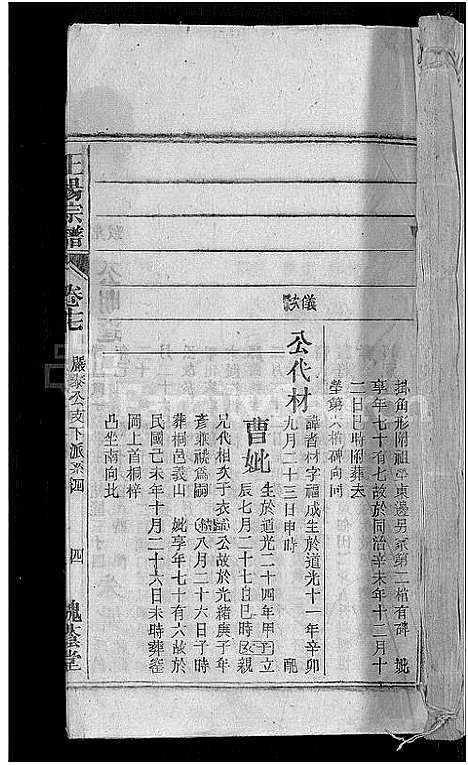 掛角形附祖塋東邊另冢第二棺有碑　妣
享年七十有七故於同治辛未年十二月十
二日巳時附葬夫
塋第六棺碑向同
儀
公代材
諱者材字福成生於道光十一年辛卯
九月二十三日申時　配
曹妣
生於道光二十四年甲子立
辰七月二十七日巳時以親
兄代相次子衣公故於光緒庚子年
彥兼祧爲嗣　八月二十六日子時
葬桐邑義山　妣享年七十有六故於
民國己未年十月二十六日未時葬
岡上首桐梓
凸坐南向北
王暘宗譜
卷七
嚴泰公支下派系四
四
槐蔭堂